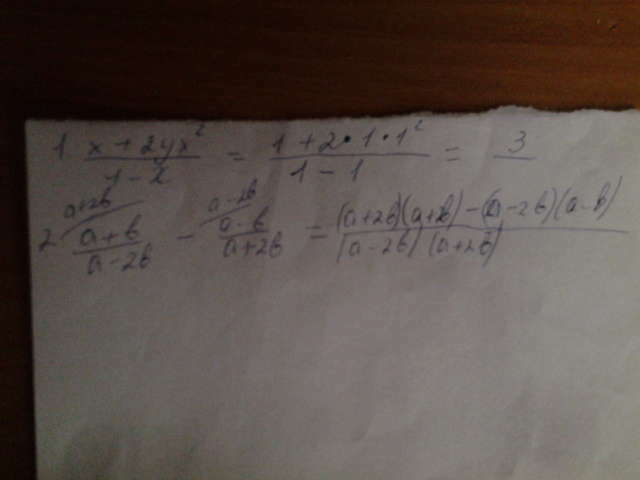 1 (x + 2yx²)/(1 - x) = (1 + 2 • 1 • 1²)/(1 - 1) = 3/
a+2b a-2b
2 (a + b)/(a - 2b) - (a - b)/(a + 2b) = ((a+2b)(a+b) - (a-2b)(a-b))/((a-2b)(a+2b))